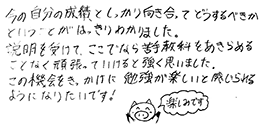 今の自分の成績としっかり向き合ってどうするべきか
ということがはっきりわかりました。
説明を受けて、ここでなら苦手教科をあきらめる
ことなく頑張っていけると強く思いました。
この機会をきっかけに勉強が楽しいと感じられる
ようになりたいです!
楽しみです